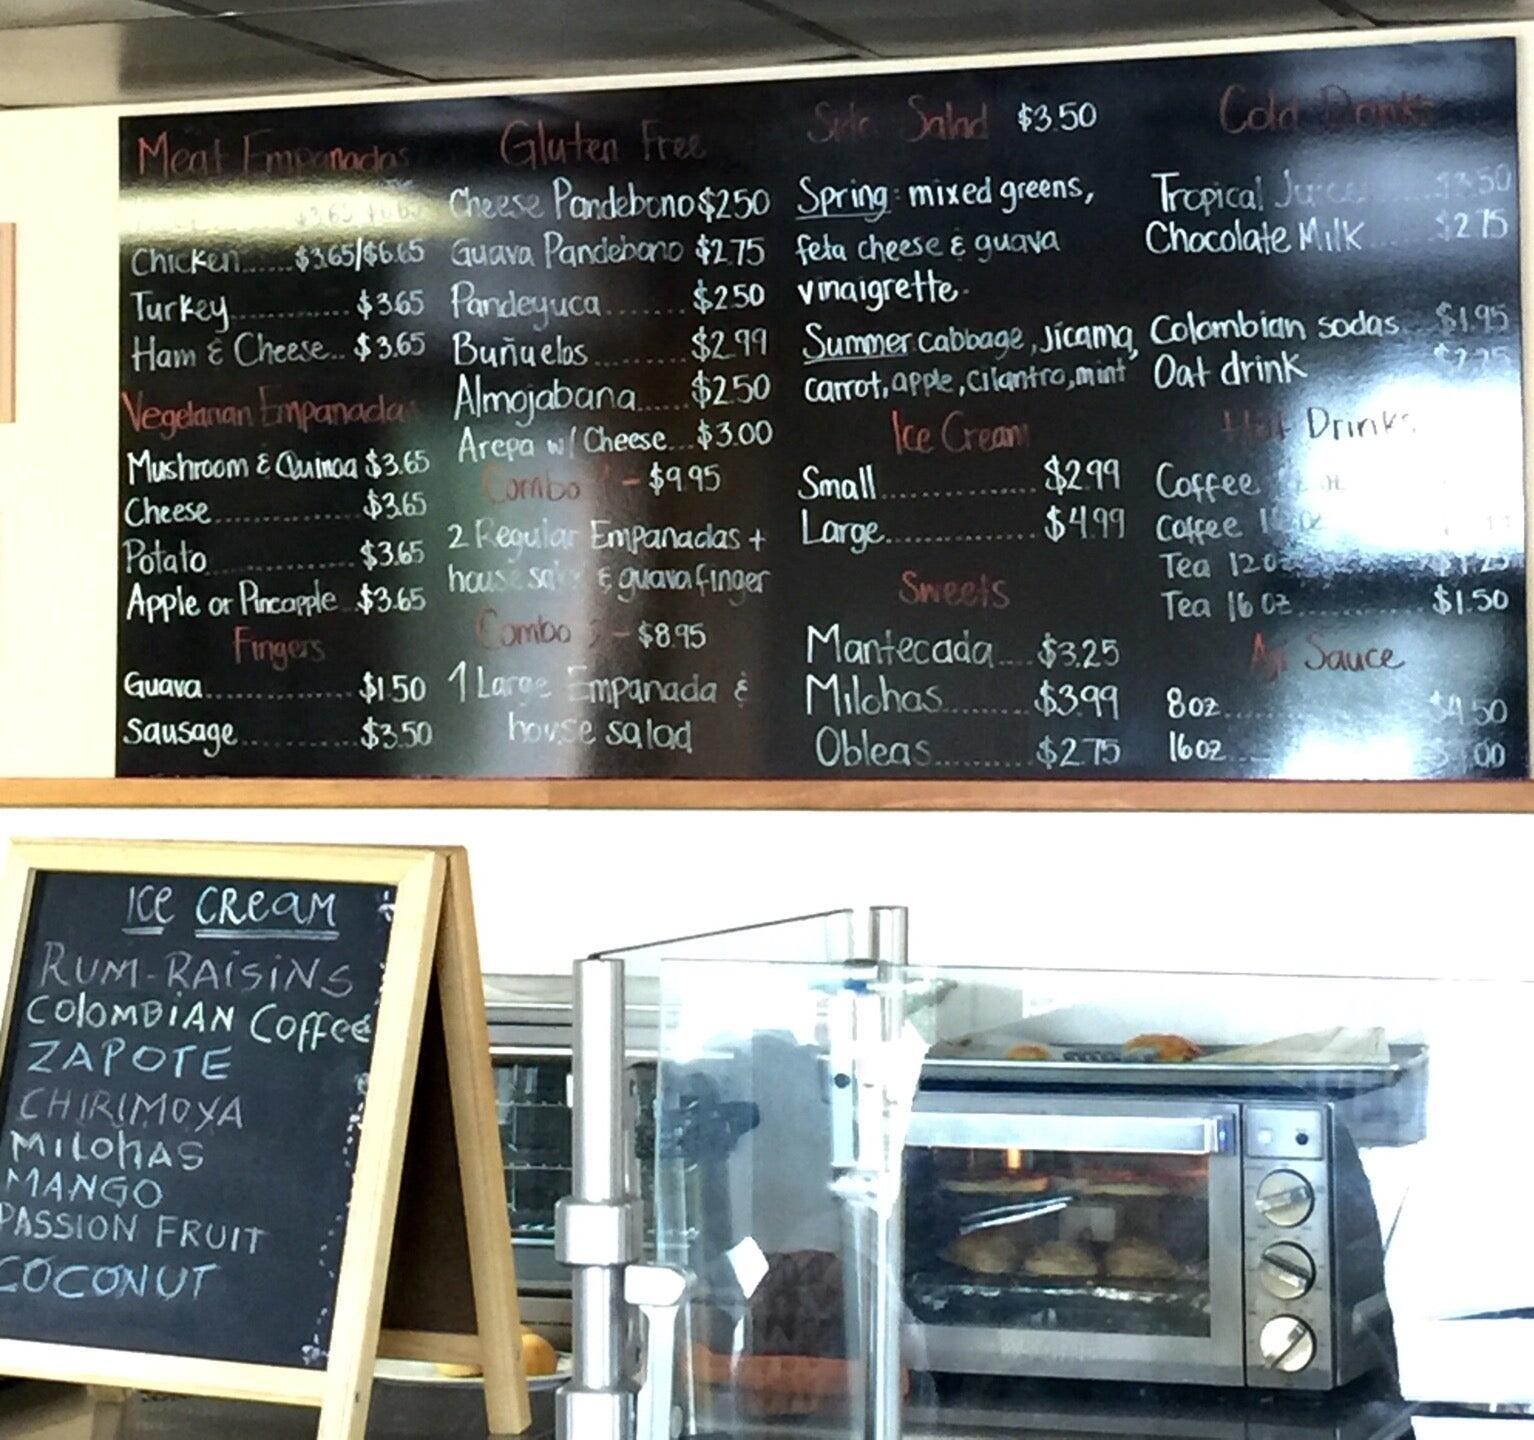 Meat Empanadas
$3.65 $6.65
Chicken......$3.65/$6.65
Turkey............$3.65
Ham & Cheese..$3.65
Vegetarian Empanadas
Mushroom & Quinoa $3.65
Cheese................$3.65
Potato.................$3.65
Apple or Pineapple..$3.65
Fingers
Guava................$1.50
Sausage.............$3.50
Gluten Free
Cheese Pandebono $2.50
Guava Pandebono $2.75
Pandeyuca.......$2.50
Buñuelos.........$2.99
Almojabana.....$2.50
Arepa w/ Cheese...$3.00
Combo - $9.95
2 Regular Empanadas +
house salad & guava finger
Combo - $8.95
1 Large Empanada &
house salad
Side Salad $3.50
Spring: mixed greens,
feta cheese & guava
vinaigrette.
Summer: cabbage, Jicama,
carrot, apple, cilantro, mint
Ice Cream
Small...............$2.99
Large..............$4.99
Sweets
Mantecada....$3.25
Milohas........$3.99
Obleas.........$2.75
Cold Drinks
Tropical Juice $3.50
Chocolate Milk....$2.75
Colombian sodas $1.95
Oat drink
Hot Drinks
Coffee
Coffee
Tea 12 oz
Tea 16 oz............$1.50
Aji Sauce
8oz $4.50
16oz
ICE CREAM
RUM-RAISINS
COLOMBIAN Coffee
ZAPOTE
CHIRIMOYA
MILOHAS
MANGO
PASSION FRUIT
COCONUT